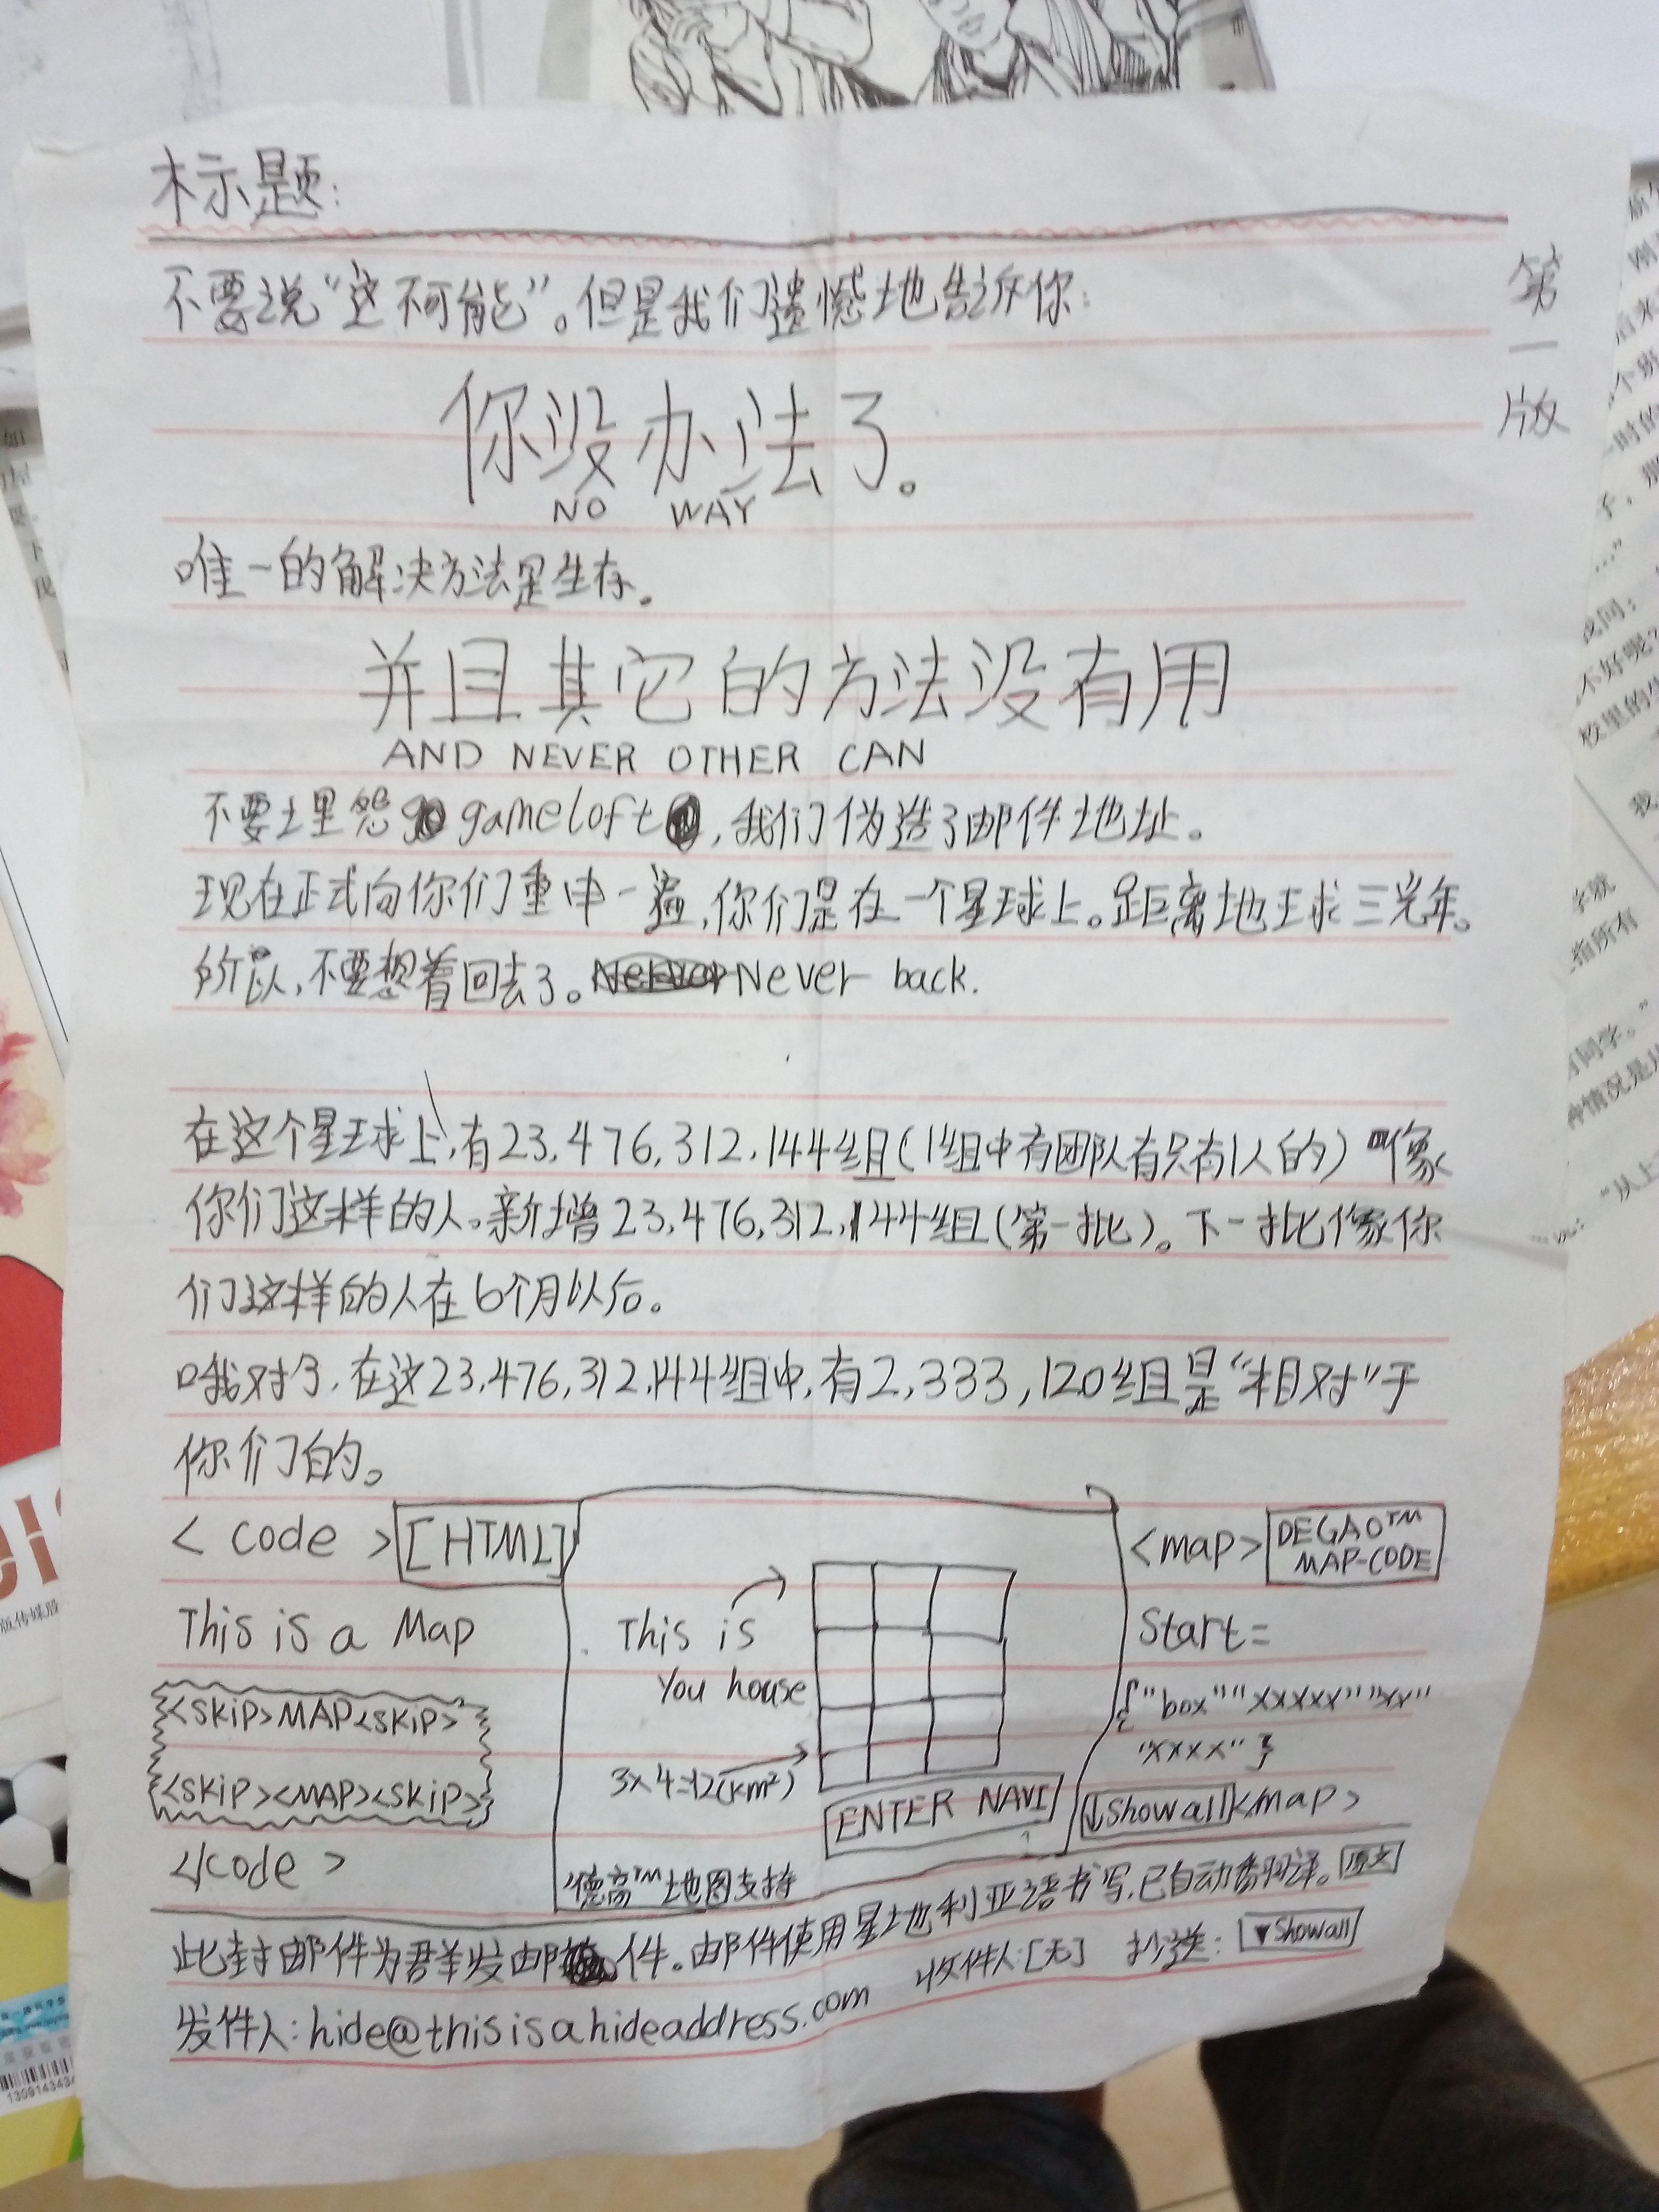 标题:
第一版
不要说“这不可能”。但是我们遗憾地告诉你:
你没办法了。
NO WAY
唯一的解决方法是生存。
并且其它的方法没有用
AND NEVER OTHER CAN
不要埋怨 gameloft,我们伪造了邮件地址。
现在正式向你们重申一遍,你们是在一个星球上。距离地球三光年。
所以,不要想着回去了。Never back.
在这个星球上,有23,476,312,144组(1组中有团队有只有1人的)像
你们这样的人。新增23,476,312,144组(第一批)。下一批像你
们这样的人在6个月以后。
哦对了,在这23,476,312,144组中,有2,333,120组是“相对”于
你们的。
<code>[HTML]
This is a Map
<skip>MAP<skip>
<skip><MAP><skip>
</code>
This is
You house
3×4=12(km²)
ENTER NAVI
德高™地图支持
<map> DEGAO™
MAP-CODE
Start=
{"box""xxxxx""xx"
"xxxx"}
↓Show all</map>
此封邮件为群发邮件。邮件使用星地利亚语书写,已自动翻译。原文
发件人:hide@thisisahideaddress.com 收件人:[无] 抄送:▼Show all